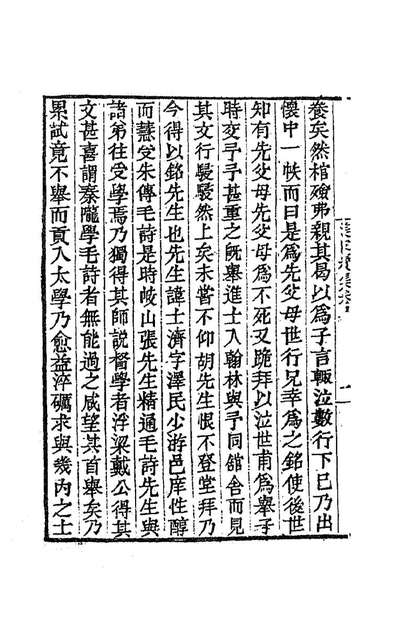 養矣然棺殮弗親其曷以為子言輒泣數行下已乃出
懷中一帙而曰是為先父母世行兄幸為之銘使後世
知有先父母先父母為不死又跪拜以泣世甫為舉子
時交予予甚重之既舉進士入翰林與予同舘舍而見
其文行駸駸然上矣未嘗不仰胡先生恨不登堂拜乃
今得以銘先生也先生諱士濟字澤民少游邑庠性醇
而慧受朱傳毛詩是時岐山張先生精通毛詩先生與
諸弟往受學焉乃獨得其師說督學者浮梁戴公得其
文甚喜謂秦隴學毛詩者無能過之咸望其首舉矣乃
累試竟不舉而貢入太學乃愈益淬礪求與畿內之士